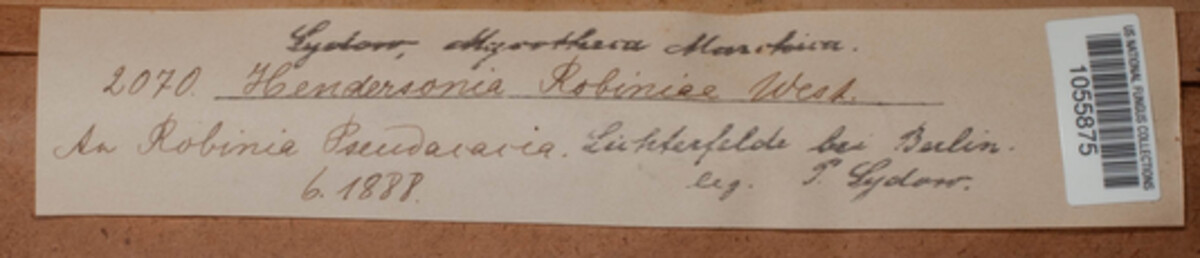 Sydow, Mycotheca Marchica.
2070. Hendersonia Robiniae West.
An Robinia Pseudacacia. Lichterfelde bei Berlin.
6. 1888. leg. P. Sydow.
US NATIONAL FUNGUS COLLECTIONS
1055875